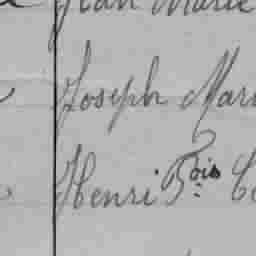 Jean Marie
Joseph Mari
Henri Fois